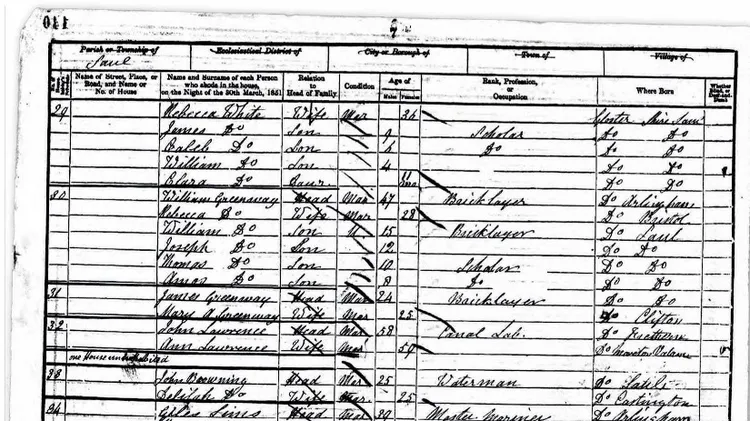 110
Parish or Township of Ecclesiastical District of City or Borough of Town of Village of
Saul
Name of Street, Place, or Road, and Name or No. of House Name and Surname of each Person who abode in the house, on the Night of the 30th March, 1851 Relation to Head of Family Condition Age of Males Females Rank, Profession, or Occupation Where Born
29 Rebecca White Wife Mar Gloster Shire Saul
James Do Son 9 Scholar Do Do
Caleb Do Son 6 Do Do Do
William Do Son 4 Do Do
Clara Do Daur 11 mo Do Do
30 William Greenaway Head Mar 47 Bricklayer Do
Rebecca Do Wife Mar 28 Do Bristol
William Do Son U 15 Bricklayer Do Saul
Joseph Do Son 12 Do Do
Thomas Do Son 10 Scholar Do Do
Amos Do Son 8 Do Do Do
31 James Greenaway Head Mar 24 Bricklayer Do Do
Mary A Greenaway Wife Mar 25 Do Clifton
32 John Lawrence Head Mar 58 Canal Lab. Do
Ann Lawrence Wife Mar Do Moreton Valance
one House uninhabited
33 John Browning Mar 25 Waterman Do Saul
Delilah Do Wife Mar 25 Do Eastington
34 Giles Sims Head Mar 39 Master Mariner Do